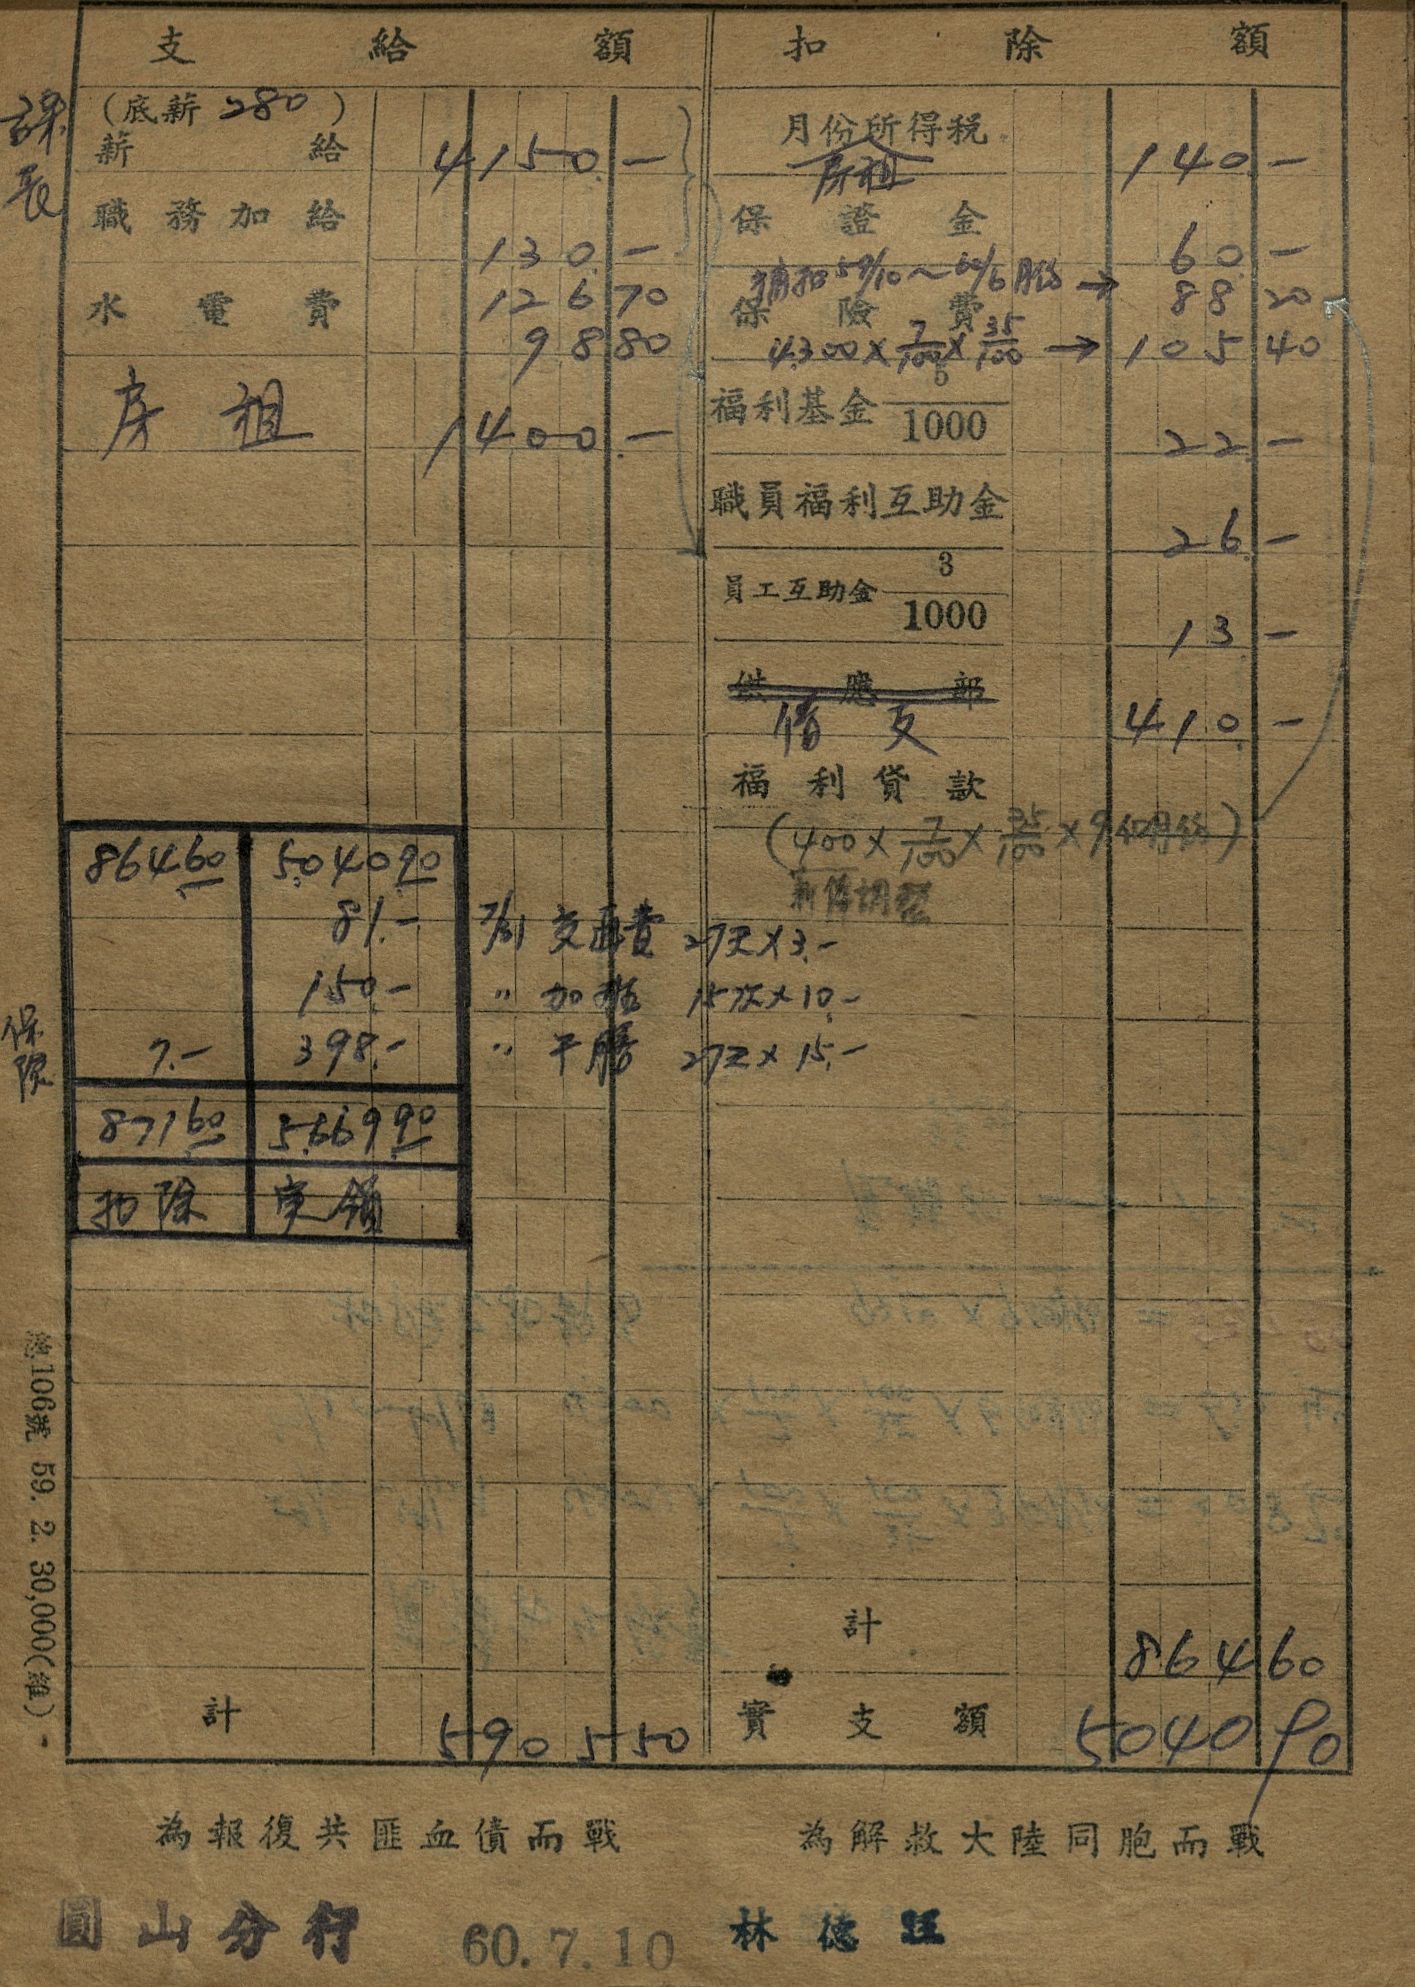 支給額
扣除額
課長
(底薪 280)
薪給 4150 —
職務加給 130 —
水電費 126 70
98 80
房租 1400 —
計 5905 50
月份所得稅 140 —
房租
保證金 60 —
補扣 59/10～60/6 月份 → 88 20
保險費
4,300 × 7/100 × 35/100 → 105 40
福利基金 5/1000 22 —
職員福利互助金 26 —
員工互助金 3/1000 13 —
供應部
借支 410 —
福利貸款
(400 × 7/100 × 35/100 × 9個月份)
薪俸調整
計 864 60
實支額 5040 90
864.60 5,040.90
81.— 7/31 交通費 27天×3.—
150.— 〃 加班 15次×10.—
保險 7.— 398.— 〃 午膳 27天×15.—
871.60 5,669.90
扣除 実領
總106號 59. 2. 30,000(維)
為報復共匪血債而戰
為解救大陸同胞而戰
圓山分行 60.7.10 林德旺